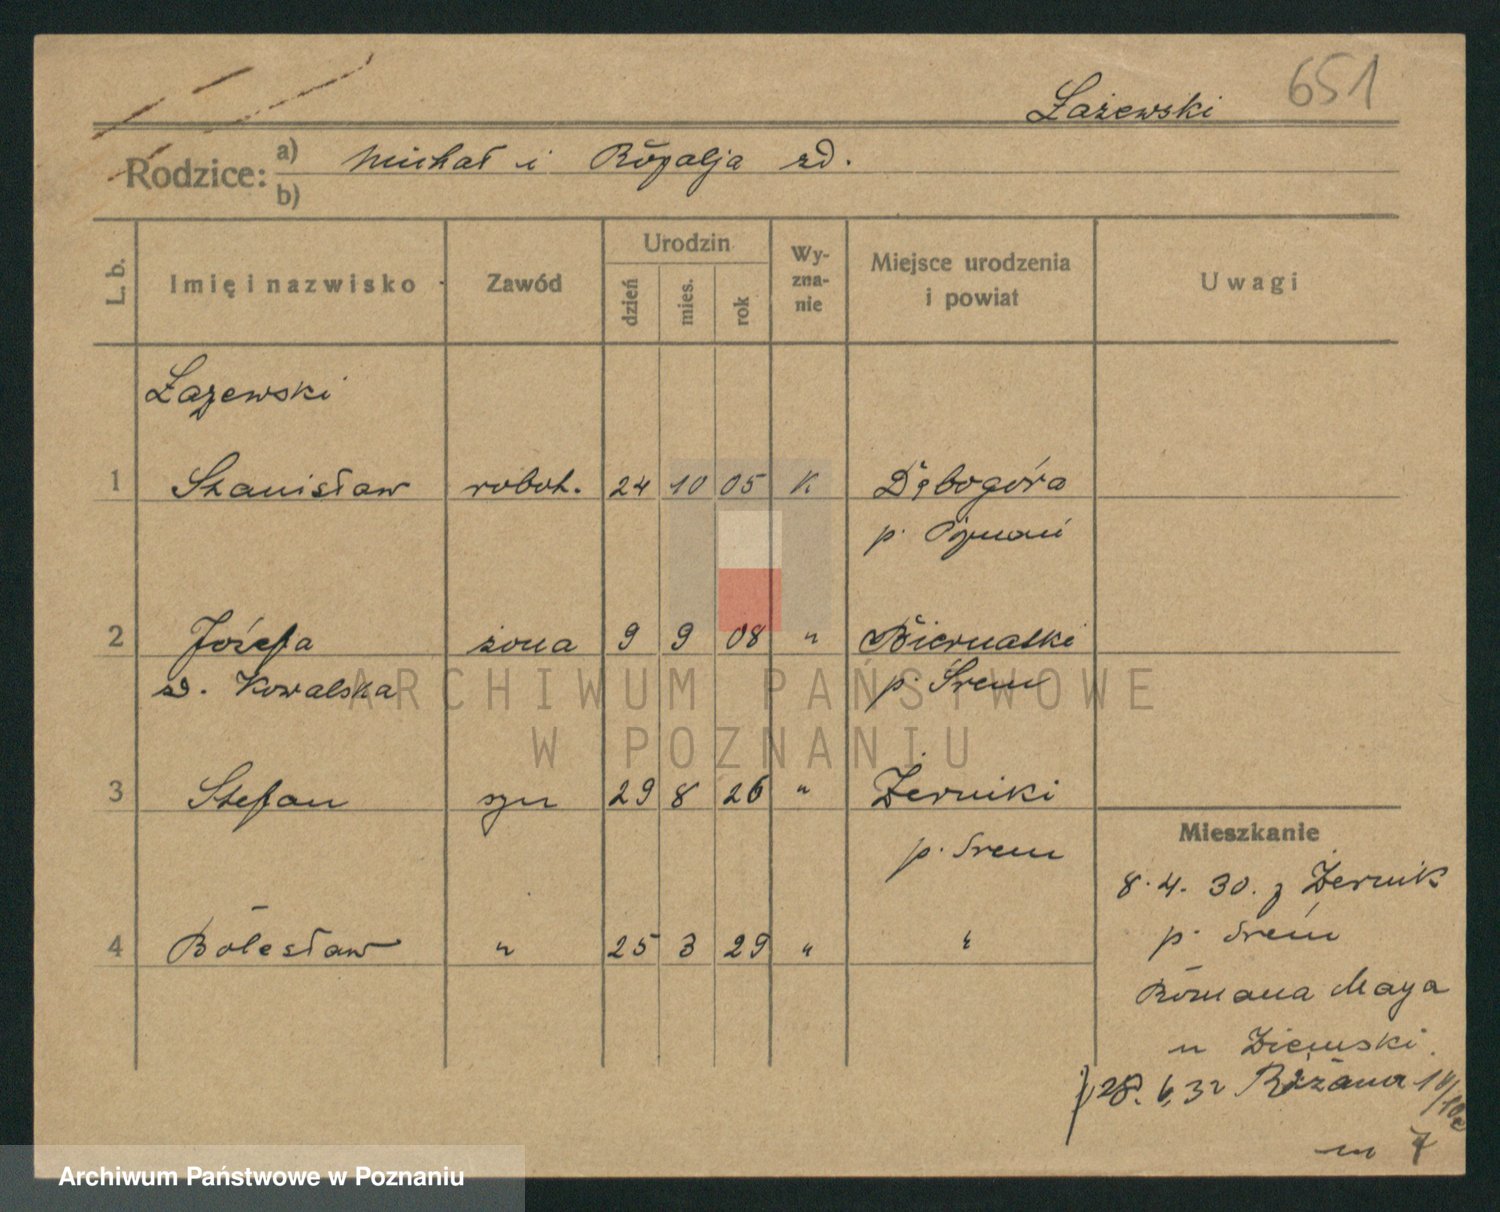 651
Łażewski
Rodzice: a) Michał i Rozalja zd.
b)
L. b. Imię i nazwisko Zawód Urodzin dzień mies. rok Wyznanie Miejsce urodzenia i powiat Uwagi
Łazewski
1 Stanisław robot. 24 10 05 K Dębogóra
p. Poznań
2 Józefa żona 9 9 08 " Biernatki
zd. Kowalska p. Śrem
ARCHIWUM PAŃSTWOWE
W POZNANIU
3 Stefan syn 29 8 26 " Żerniki
p. Śrem
Mieszkanie
8. 4. 30. z Żernik
p. Śrem
4 Bolesław " 25 3 29 " "
Romana Maya
u Ziemski
28. 6. 32
m 7
Archiwum Państwowe w Poznaniu